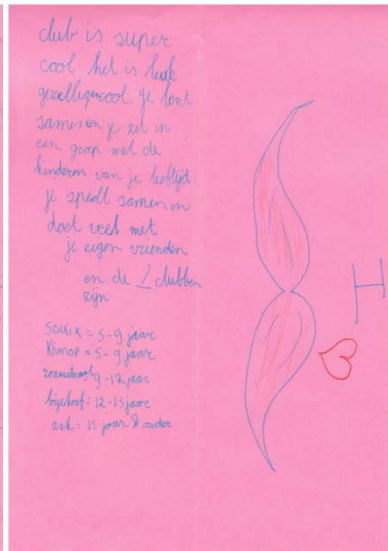 club is super
cool het is leuk
gezelligencool. je
samen en je zit in
een groep met de
kinderen van je leeftijd.
je speelt samen en
doet veel met
je eigen vrienden
en de clubben
zijn
= 5-9 jaar
Klimop = 5-9 jaar
9-12 jaar
: 12-15 jaar
esk: 15 jaar & ouder
H